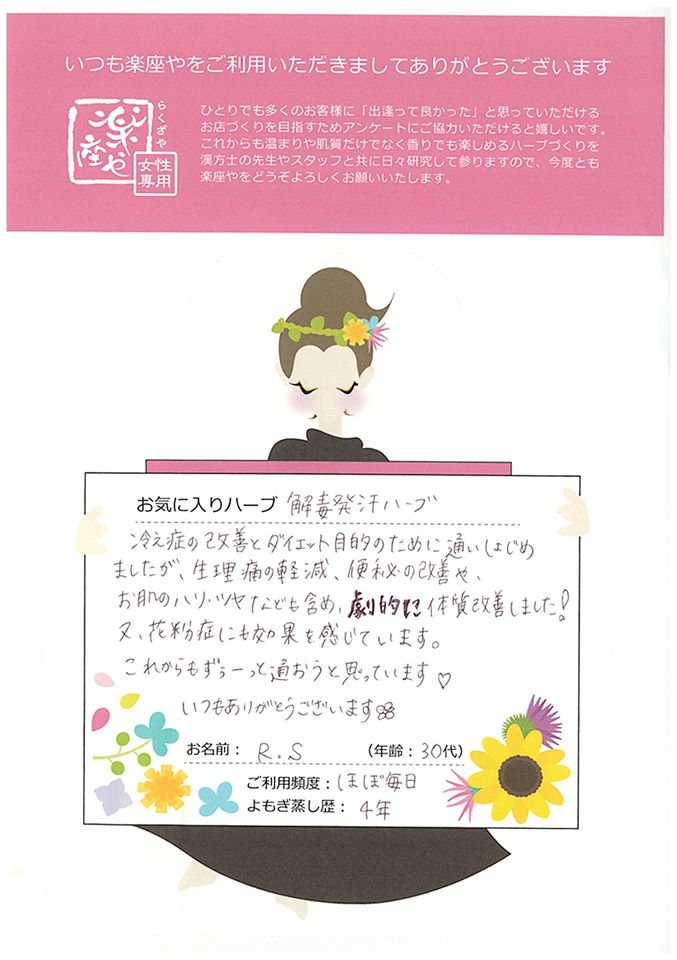 いつも楽座やをご利用いただきましてありがとうございます
らくざや
楽座や
女性専用
ひとりでも多くのお客様に「出逢って良かった」と思っていただける
お店づくりを目指すためアンケートにご協力いただけると嬉しいです。
これからも温まりや肌質だけでなく香りでも楽しめるハーブづくりを
漢方士の先生やスタッフと共に日々研究して参りますので、今度とも
楽座やをどうぞよろしくお願いいたします。
お気に入りハーブ 解毒発汗ハーブ
冷え症の改善とダイエット目的のために通いはじめ
ましたが、生理痛の軽減、便秘の改善や、
お肌のハリ・ツヤなども含め、劇的に体質改善しました!
又、花粉症にも効果を感じています。
これからもずぅーっと通おうと思っています♡
いつもありがとうございます
お名前: R.S (年齢:30代)
ご利用頻度:ほぼ毎日
よもぎ蒸し歴: 4年